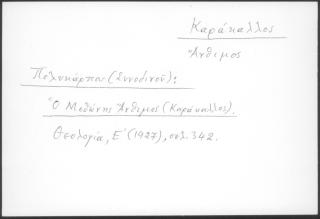 Καράκαλλος
Ἄνθιμος
Πολυκάρπου (Συνοδινοῦ):
Ὁ Μεθώνης Ἄνθιμος (Καράκαλλος).
Θεολογία, Ε΄ (1927), σελ. 342.